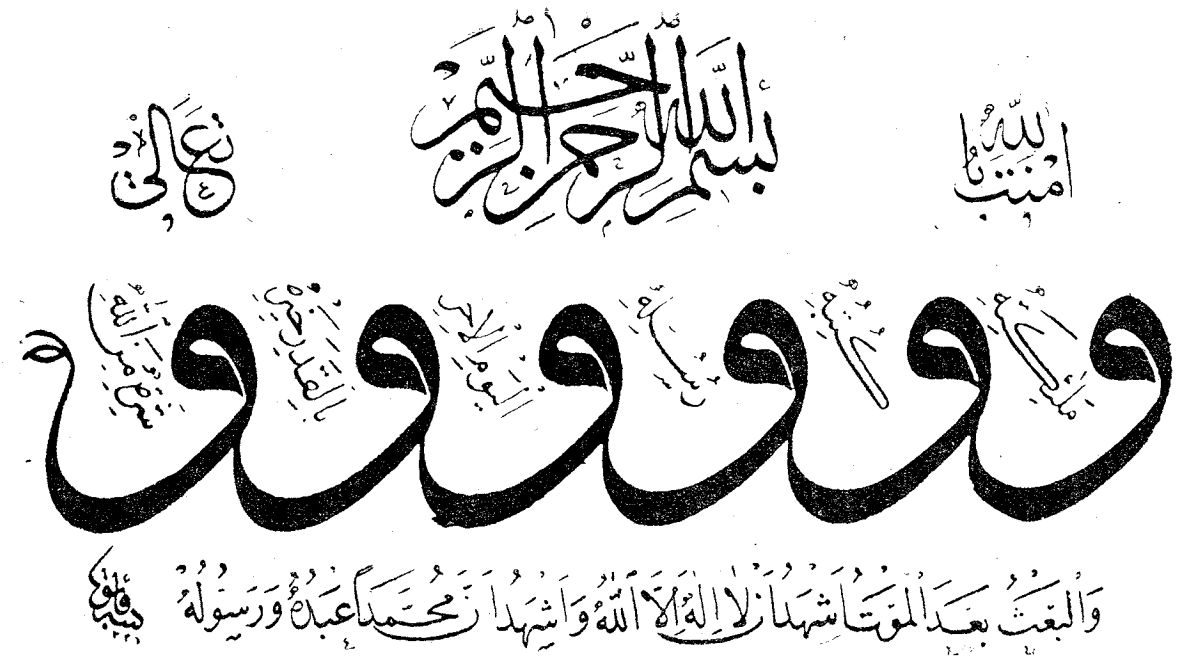 بسم الله الرحمن الرحيم
امنت بالله
وملئكته وكتبه ورسله واليوم الاخر وبالقدر خيره وشره من الله
تعالى
والبعث بعد الموت اشهد ان لا اله الا الله واشهد ان محمدا عبده ورسوله